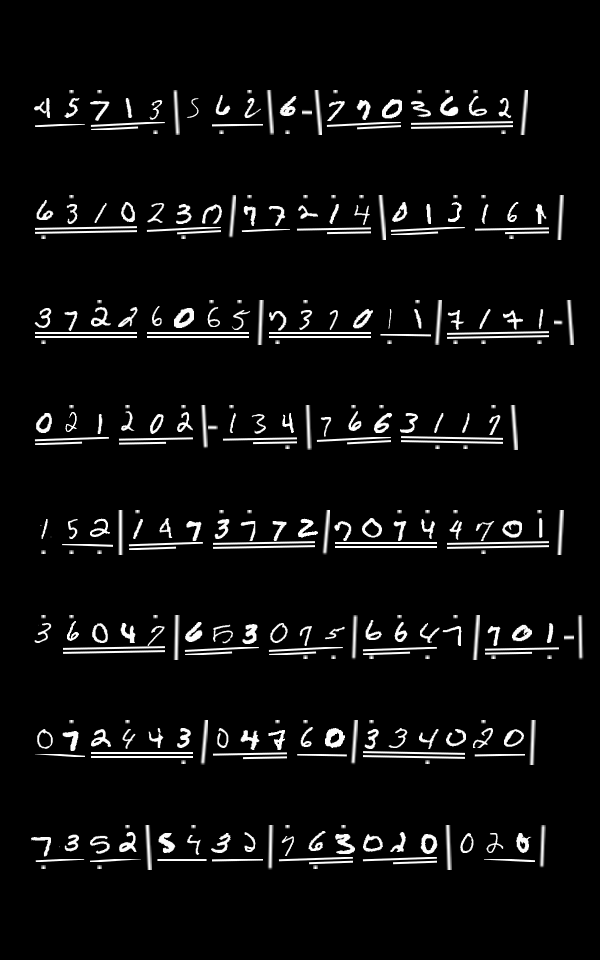 45713|562|6-|7703662
6310230|77214|013161
37226065|737011|7171-|
021202|-134|7663117|
152|1473772|70744701|
36047|653075|6647|701-|
072443|04760|334020|
7352|5432|763020|020|